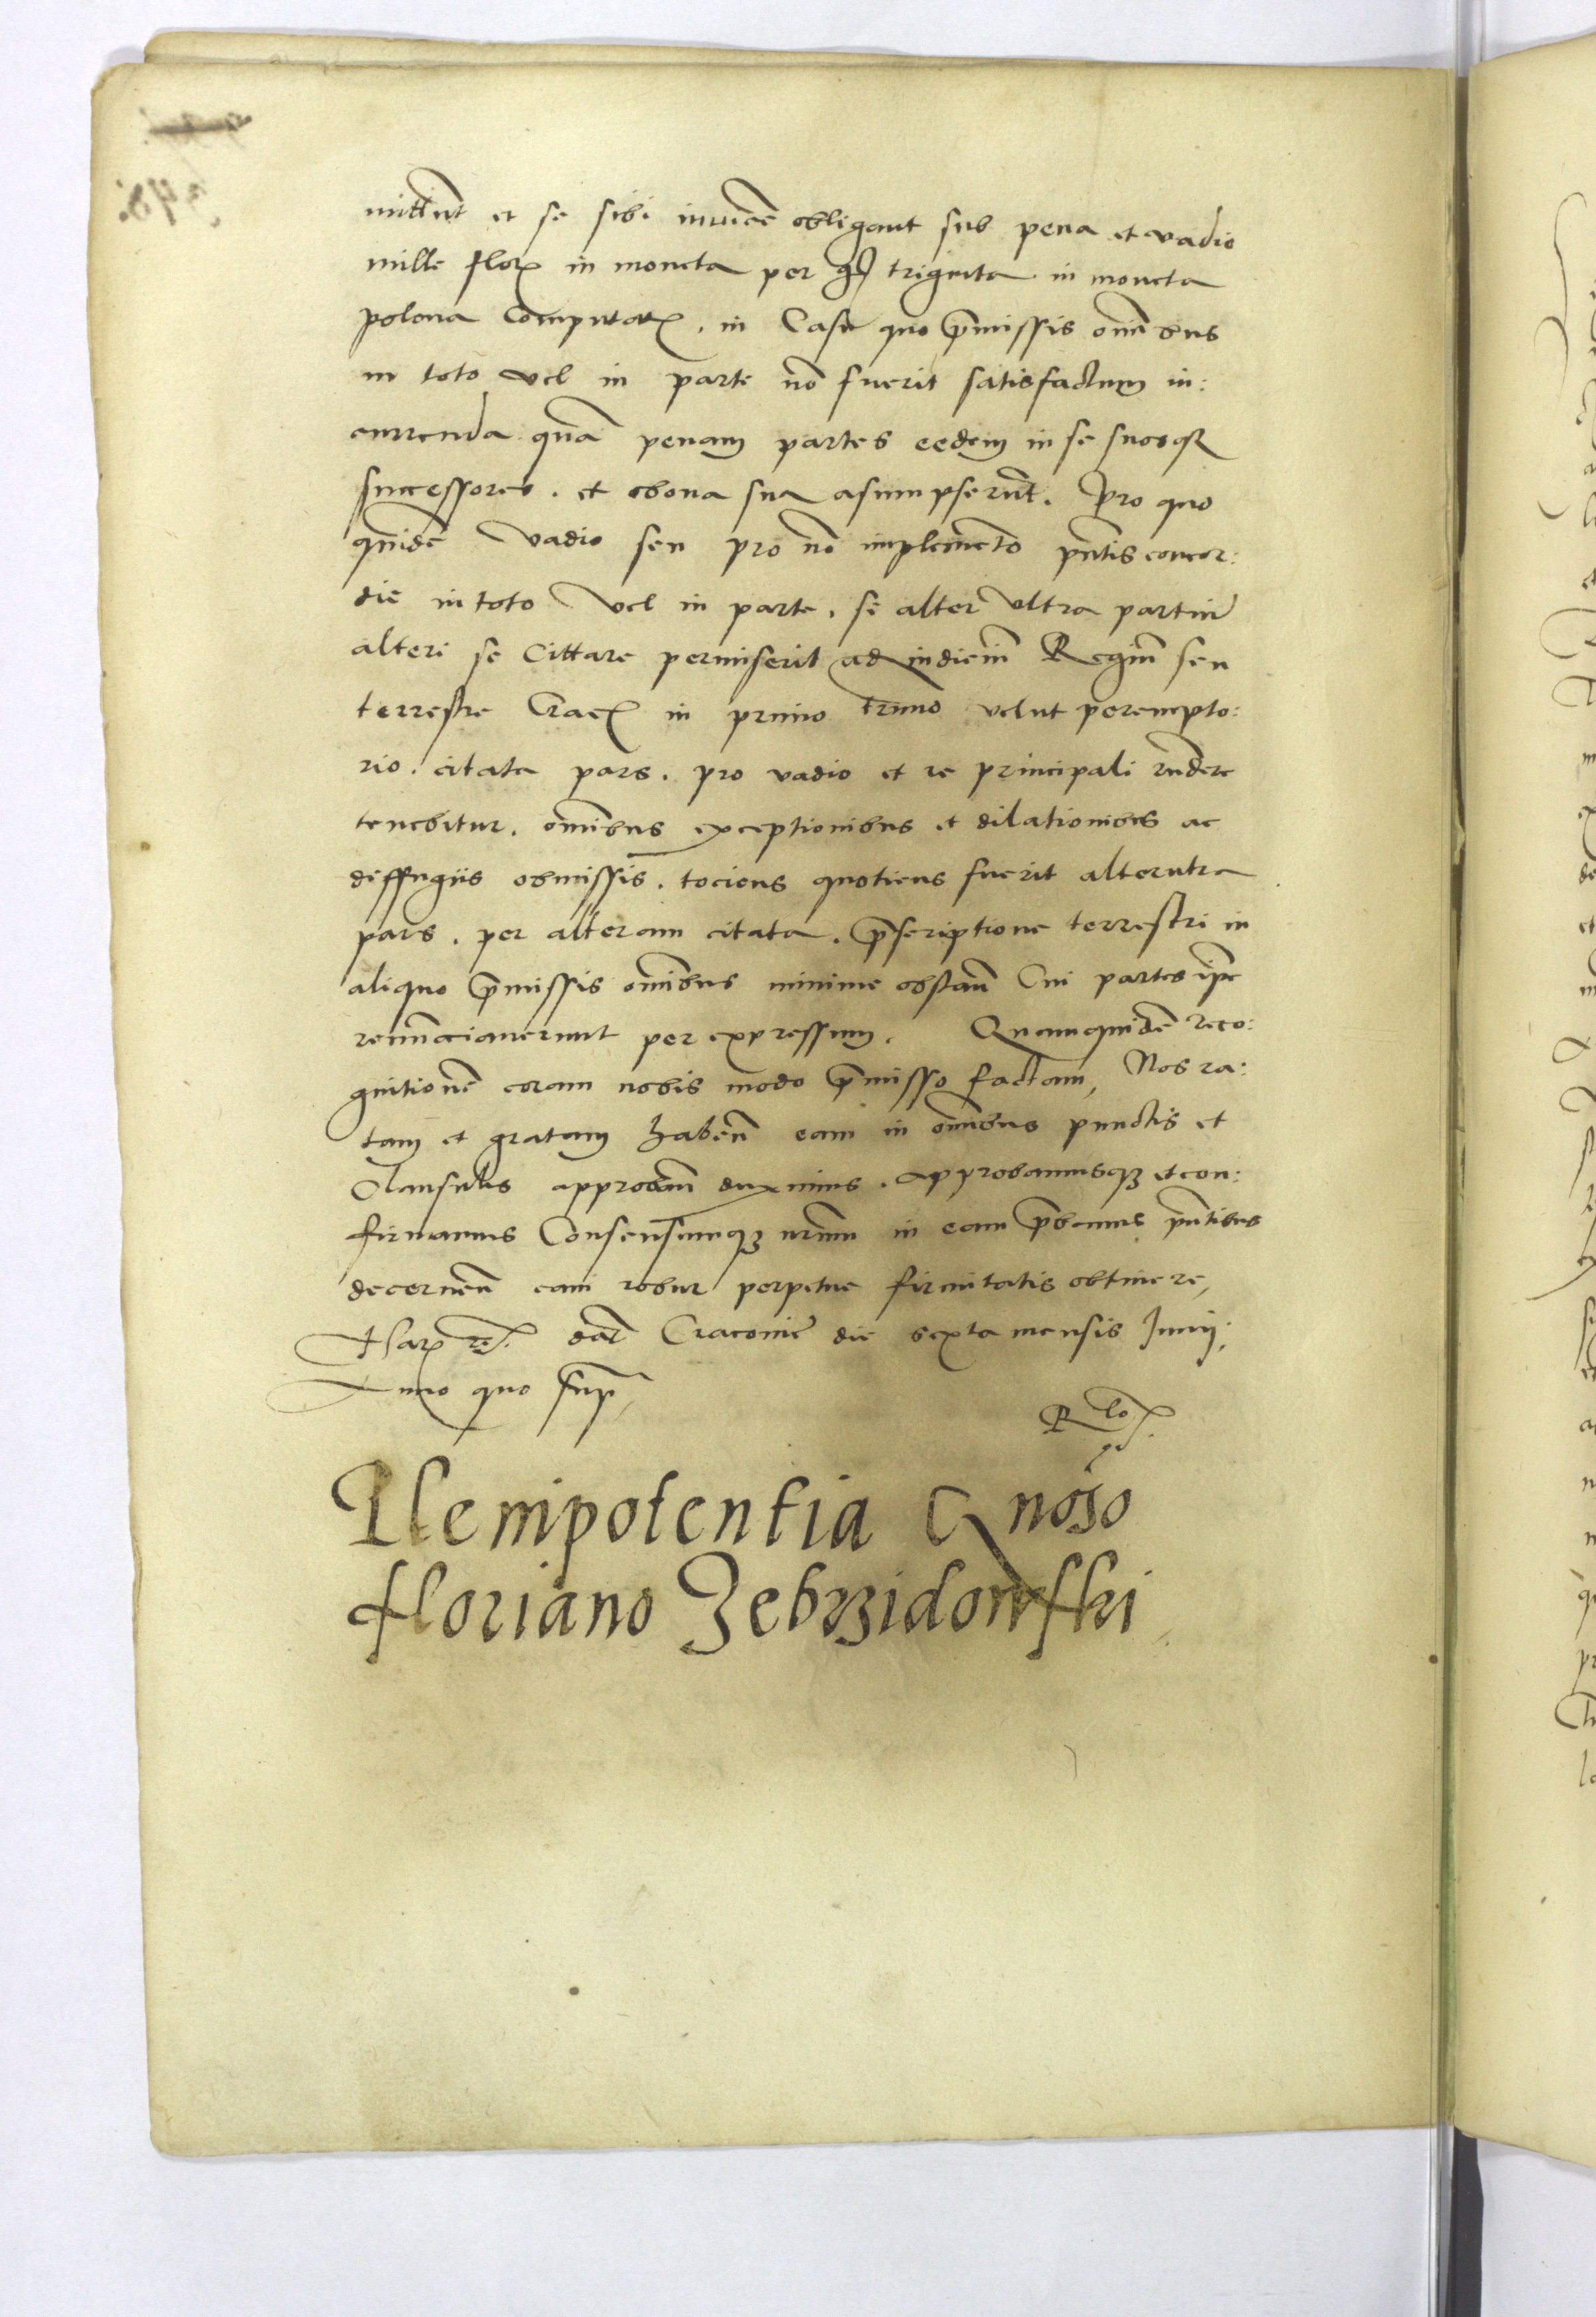 mittunt et se sibi inuicē obligant sub pena et vadio
mille flor in moneta per gr triginta in moneta
polona computatr, in Casu quo p̄missis om̄ibus
in toto vel in parte nō fuerit satisfactum in:
currenda quā penam partes eedem in se suosq
successores. et obona sua asumpserūt. Pro quo
quidē vadio seu pro nō implemēto pn̄tis concor:
die in toto vel in parte. se alter vltra partiū
alteri se Cittare permiserit ad iudiciū Regiū seu
terrestre Crac in primo trmno velut perempto:
rio. citata pars. pro vadio et re principali rn̄dere
tenebitur. om̄ibus exceptionibus et dilationibus ac
deffugiis obmissis. tociens quotiens fuerit alterutra
pars. per alteram citata. p̄scriptione terrestri in
aliquo p̄missis om̄ibus minime obstan̄ Cui partes ip̄e
renūcciauerunt per expressum. Quamquidē reco:
gnitionē coram nobis modo p̄misso factam, Nos ra:
tam et gratam haben̄ eam in om̄ibus punctis et
Clausulis approban̄ duximus. approbamusq et con:
firmamus Consensumq nr̄um in eam p̄bemus pn̄tibus
decernen̄ eam robur perpetue firmitatis obtinere,
Harr re. dat Cracouie die sexta mensis Junij,
Anno quo sup,
Rlo
Plenipotentia Gnoso
floriano Zebrzidowski